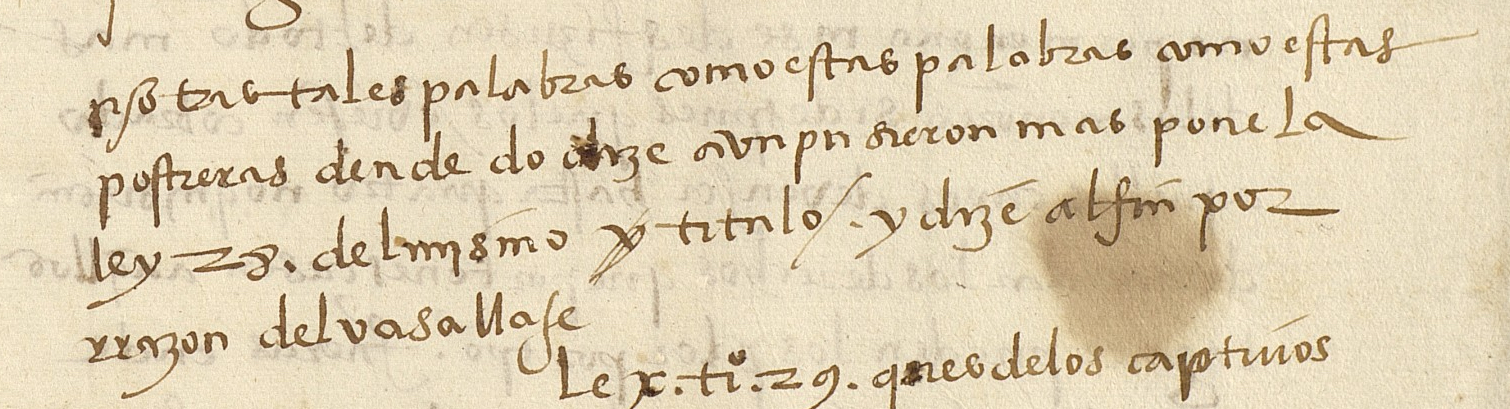 tales palabras como estas palabras como estas
postreras dende do dize avn pusieron mas pone la
ley 28. del mismo titulo. y dizē al fin por
rrazon del vasallaje
Lex. tiº. 29. ques delos captiuos